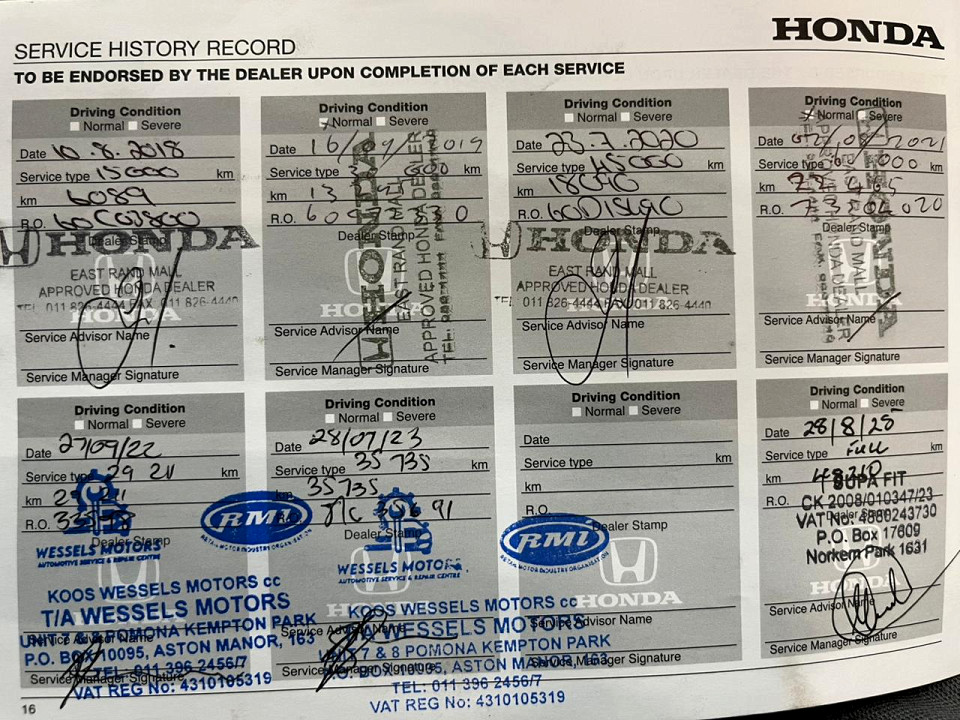 HONDA
SERVICE HISTORY RECORD
TO BE ENDORSED BY THE DEALER UPON COMPLETION OF EACH SERVICE
Driving Condition
Normal Severe
Date 10.8.2018
Service type 15000 km
km 6089
R.O.
Dealer Stamp
HONDA
EAST RAND MALL
APPROVED HONDA DEALER
TEL: 011 826-4444 FAX: 011 826-4440
HONDA
Service Advisor Name
Service Manager Signature
Driving Condition
Normal Severe
Date 16/09/2019
Service type km
km
R.O.
Dealer Stamp
HONDA
EAST RAND MALL
APPROVED HONDA DEALER
HONDA
Service Advisor Name
Service Manager Signature
Driving Condition
Normal Severe
Date 23.7.2020
Service type 45000 km
km 18040
R.O.
Dealer Stamp
HONDA
EAST RAND MALL
APPROVED HONDA DEALER
TEL: 011 826-4444 FAX: 011 826-4440
HONDA
Service Advisor Name
Service Manager Signature
Driving Condition
Normal Severe
Date
Service type km
km 22 465
R.O.
Dealer Stamp
HONDA
Service Advisor Name
Service Manager Signature
Driving Condition
Normal Severe
Date 27/09/22
Service type km
km
R.O.
Dealer Stamp
RMI
WESSELS MOTORS
AUTOMOTIVE SERVICE & REPAIR CENTRE
KOOS WESSELS MOTORS cc
T/A WESSELS MOTORS
UNIT 7 & 8 POMONA KEMPTON PARK
P.O. BOX 10095, ASTON MANOR, 163
TEL: 011 396 2456/7
VAT REG No: 4310105319
Service Advisor Name
Service Manager Signature
Driving Condition
Normal Severe
Date 28/07/23
Service type 35 735 km
km 35735
R.O.
Dealer Stamp
WESSELS MOTORS
AUTOMOTIVE SERVICE & REPAIR CENTRE
RMI
KOOS WESSELS MOTORS cc
T/A WESSELS MOTORS
UNIT 7 & 8 POMONA KEMPTON PARK
P.O. BOX 10095, ASTON MANOR, 163
TEL: 011 396 2456/7
VAT REG No: 4310105319
Service Advisor Name
Service Manager Signature
Driving Condition
Normal Severe
Date
Service type km
km
R.O.
Dealer Stamp
HONDA
Service Advisor Name
Service Manager Signature
Driving Condition
Normal Severe
Date 28/8/25
Service type Full km
km
R.O.
SUPA FIT
CK 2008/010347/23
Dealer Stamp
VAT No: 4880243730
P.O. Box 17609
Norkem Park 1631
Service Advisor Name
Service Manager Signature
16